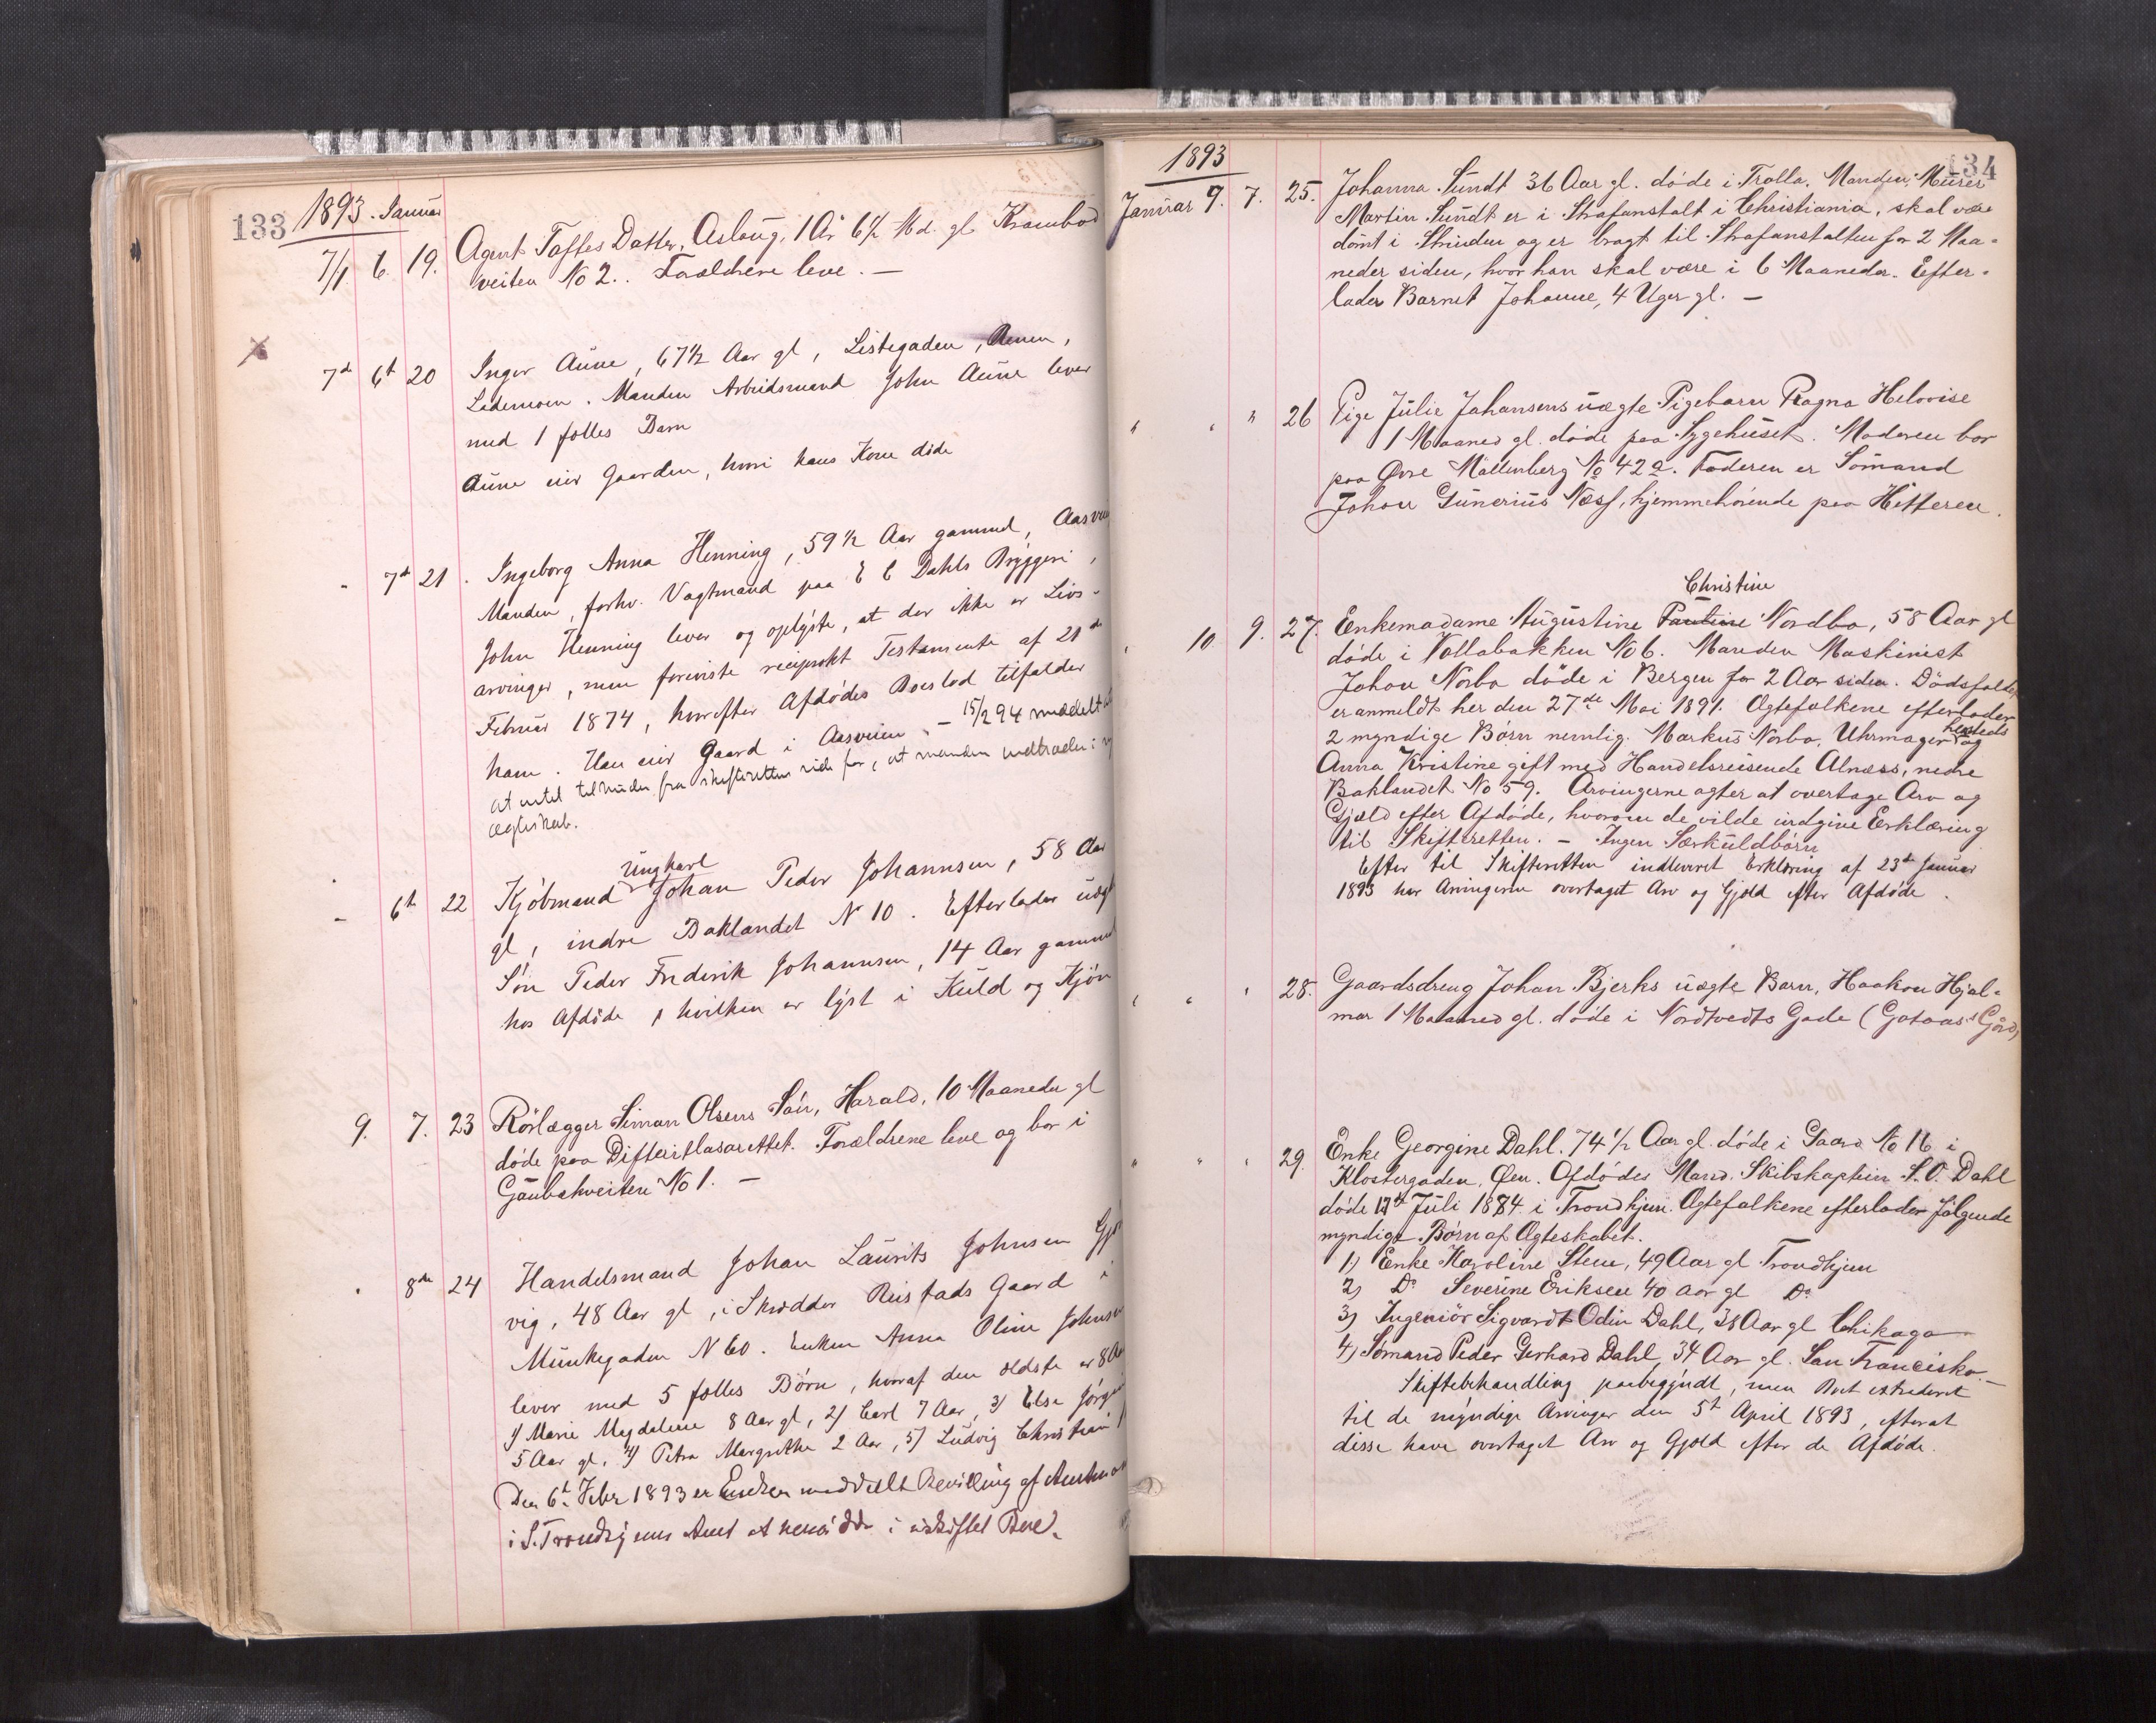 133
1893. Januar
7/1 6. 19. Agent Toftes Datter, Aslaug, 1 År 6½ Md. gl Krambod
veiten No 2.. Forældrene leve. —
7d 6t 20 Inger Aune, 67½ Aar gl, Listegaden,
Lademoen. Manden Arbeidsmand John Aune lever
med 1 fælles Barn
Aune eier Gaarden, hvori hans Kone døde
" 7d 21. Ingeborg Anna Henning, 59½ Aar gammel, Aasvei
Manden, forhv. Vagtmand paa E C Dahls Bryggeri,
John Henning lever og oplyste, at der ikke er Livs-
arvinger, men foreviste reciprokt Testamente af 21de
Februar 1874, hvorefter Afdødes Boeslod tilfalder
ham. Han eier Gaard i Aasveien. — 15/2 94 meddelt
at intet tilhinder fra skifterettens side for, at manden indtræder i
ægteskab.
Ungkarl
" 6t 22 Kjøbmand Johan Peder Johannsen, 58 Aar
gl, indre Baklandet N 10. Efterlader uægt
Søn Peder Frederik Johannsen, 14 Aar gammel
hos Afdøde, hvilken er lyst i Kuld og Kjøn
9. 7. 23 Rørlægger Simon Olsens Søn, Harald, 10 Maaneder gl
døde paa Difteritlasarettet. Forældrene leve og bor i
Gaubækveiten No 1. —
" 8de 24 Handelsmand Johan Laurits Johnsen Gjør
vig, 48 Aar gl, i Skrædder Reistads Gaard i
Munkegaden N 60. Enken Anna Oline Johnsen
lever med 5 fælles Børn, hvoraf den ældste er 8 Aar
1) Marie Magdalene 8 Aar gl, 2) Carl 7 Aar, 3) Elsa Jørgine
5 Aar gl, 4) Petra Margrethe 2 Aar, 5) Ludvig Christian
Den 6t Febr 1893 er Enken meddelt Bevilling af Amtmanden
i S. Trondhjems Amt at hensidde i uskiftet Bo.
134
1893
Januar 9. 7. 25. Johanna Sundt 36 Aar gl. døde i Trolla. Manden, Murer
Martin Sundt er i Strafanstalt i Christiania, skal være
dømt i Strinden og er bragt til Strafanstalten for 2 Maa-
neder siden, hvor han skal være i 6 Maaneder. Efter-
lader Barnet Johanne, 4 Uger gl. —
" " " 26 Pige Julie Johansens uægte Pigebarn Ragna Helovise
1 Maaned gl. døde paa Sygehuset. Moderen bor
paa Øvre Møllenberg No 422. Faderen er Sømand
Johan Gunerius Næss, hjemmehørende paa Hitteren.
Christine
" 10. 9. 27. Enkemadame Augustine Pauline Nordbo, 58 Aar gl
døde i Vollabakken No 6. Manden Maskinist
Johan Norbo døde i Bergen for 2 Aar siden. Dødsfaldet
er anmeldt her den 27de Mai 1891. Ægtefolkene efterlader
2 myndige Børn nemlig. Markus Norbo, Uhrmager hersteds og
Anna Kristine gift med Handelsreisende Alness, nedre
Baklandet No 59. Arvingerne agter at overtage Arv og
Gjæld efter Afdøde, hvorom de vilde indgive Erklæring
til Skifteretten. — Ingen Særkuldbørn
Efter til Skifteretten indleveret Erklæring af 23de Januar
1893 har Arvingerne overtaget Arv og Gjæld efter Afdøde.
" " " 28. Gaardsdreng Johan Bjerks uægte Barn, Haakon Hjal-
mar 1 Maaned gl. døde i Nordtvedts Gade (Gotaas's Gård)
" " " 29. Enke Georgine Dahl. 74½ Aar gl. døde i Gaard No 16 i
Klostergaden, Øen. Afdødes Mand. Skibskaptein S. O. Dahl
døde 17de Juli 1884 i Trondhjem. Ægtefolkene efterlader følgende
myndige Børn af Ægteskabet.
1) Enke Karoline Stene, 49 Aar gl Trondhjem
2) Do Severine Eriksen 40 Aar gl Do
3) Ingeniør Sigvardt Odin Dahl, 38 Aar gl Chikago
4) Sømand Peder Gerhard Dahl, 34 Aar gl. San Francisko. —
Skiftebehandling paabegyndt, men Boet extraderet
til de myndige Arvinger den 5t April 1893, efterat
disse have overtaget Arv og Gjæld efter de Afdøde.